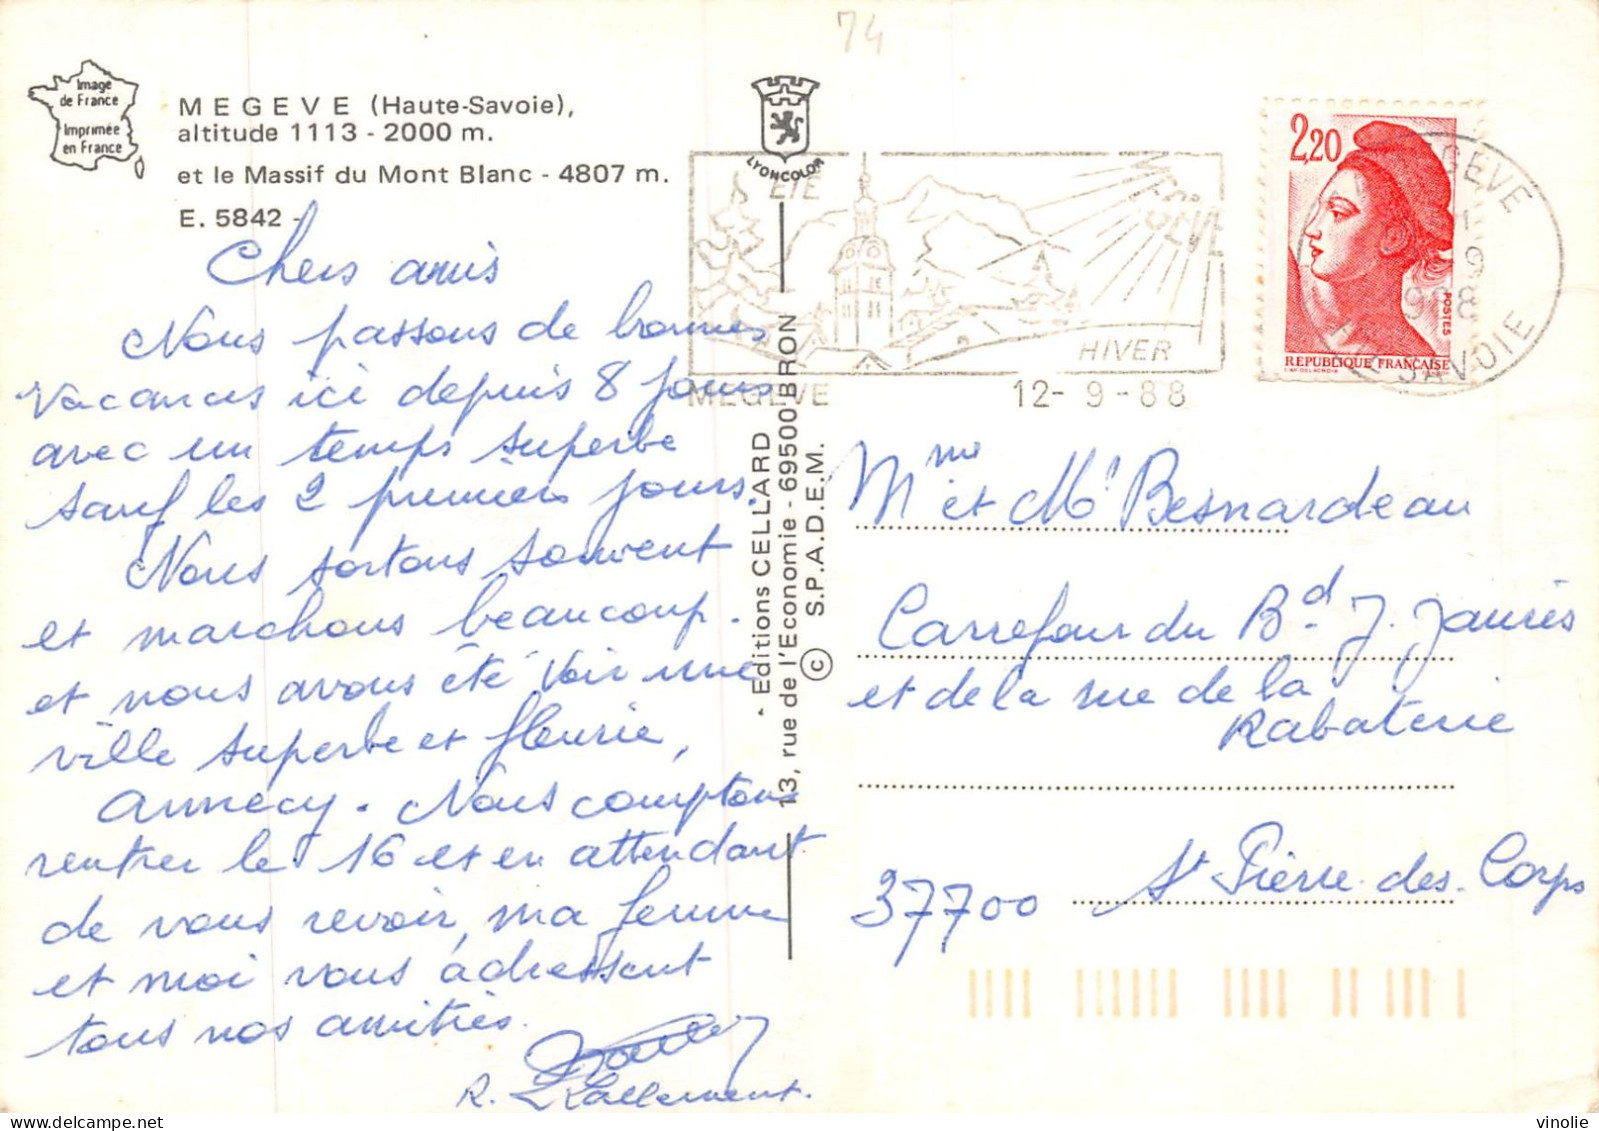 74
Image
de France
Imprimée
en France
MEGEVE (Haute-Savoie),
altitude 1113 - 2000 m.
et le Massif du Mont Blanc - 4807 m.
E. 5842 -
Chers amis
Nous passons de bonnes
vacances ici depuis 8 jours
avec un temps superbe
sauf les 2 premiers jours.
Nous sortons souvent
et marchons beaucoup.
et nous avons été voir une
ville superbe et fleurie,
Annecy. Nous comptons
rentrer le 16 et en attendant
de vous revoir, ma femme
et moi vous adressent
tous nos amitiés.
R. Lallement.
LYONCOLOR
Editions CELLARD
13, rue de l'Economie - 69500 BRON
© S.P.A.D.E.M.
ÉTÉ
MEGEVE
HIVER
MEGEVE
12- 9 -88
2,20
POSTES
REPUBLIQUE FRANÇAISE
MEGEVE
SAVOIE
Mme et Mr Besnardeau
Carrefour du Bd J. Jaurès
et de la rue de la
Rabaterie
37700 St Pierre-des-Corps
vinolie